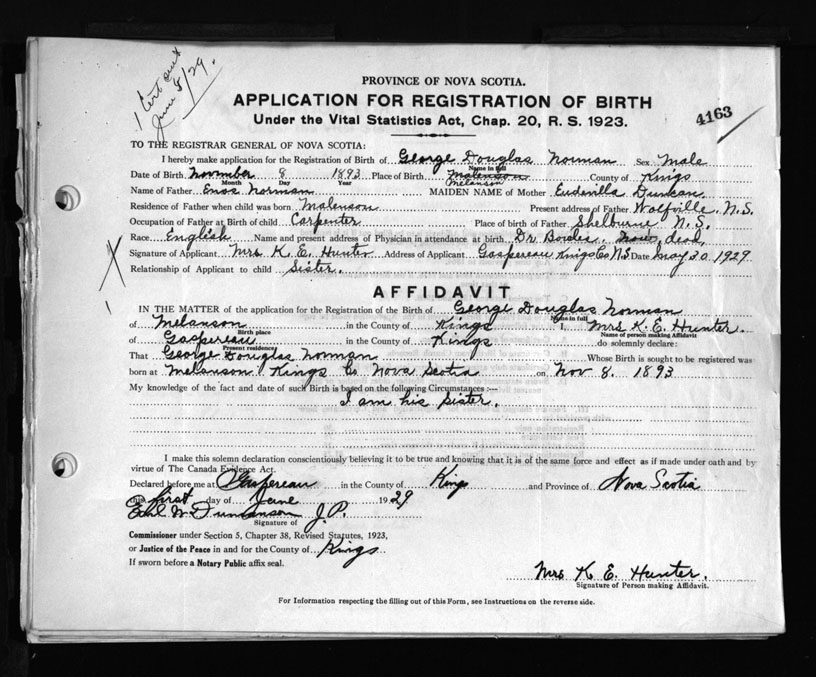 1 Cert out
June 5/29.
PROVINCE OF NOVA SCOTIA.
APPLICATION FOR REGISTRATION OF BIRTH
Under the Vital Statistics Act, Chap. 20, R. S. 1923.
4163
TO THE REGISTRAR GENERAL OF NOVA SCOTIA:
I hereby make application for the Registration of Birth of George Douglas Norman Sex Male
Name in full
Date of Birth November 8 1893 Place of Birth Melanson County of Kings
Month Day Year Melanson
Name of Father Enos Norman MAIDEN NAME of Mother Eudavilla Duncan
Residence of Father when child was born Melanson Present address of Father Wolfville N.S.
Occupation of Father at Birth of child Carpenter Place of birth of Father Shelburne N.S.
Race English Name and present address of Physician in attendance at birth Dr. Bowles, dead,
Signature of Applicant Mrs K. E. Hunter Address of Applicant Gaspereau Kings Co N.S Date May 30 1929
Relationship of Applicant to child Sister.
AFFIDAVIT
IN THE MATTER of the application for the Registration of the Birth of George Douglas Norman
Name in full
of Melanson in the County of Kings I, Mrs K. E. Hunter.
Birth place Name of person making Affidavit
of Gaspereau in the County of Kings do solemnly declare:
Present residence
That George Douglas Norman Whose Birth is sought to be registered was
born at Melanson Kings Co Nova Scotia on Nov 8. 1893
My knowledge of the fact and date of such Birth is based on the following Circumstances :—
I am his sister.
I make this solemn declaration conscientiously believing it to be true and knowing that it is of the same force and effect as if made under oath and by
virtue of The Canada Evidence Act.
Declared before me at Gaspereau in the County of Kings and Province of Nova Scotia
this first day of June 1929
Earl W. Duncanson J.P.
Signature of
Commissioner under Section 5, Chapter 38, Revised Statutes, 1923,
or Justice of the Peace in and for the County of Kings
If sworn before a Notary Public affix seal.
Mrs K E. Hunter.
Signature of Person making Affidavit.
For Information respecting the filling out of this Form, see Instructions on the reverse side.